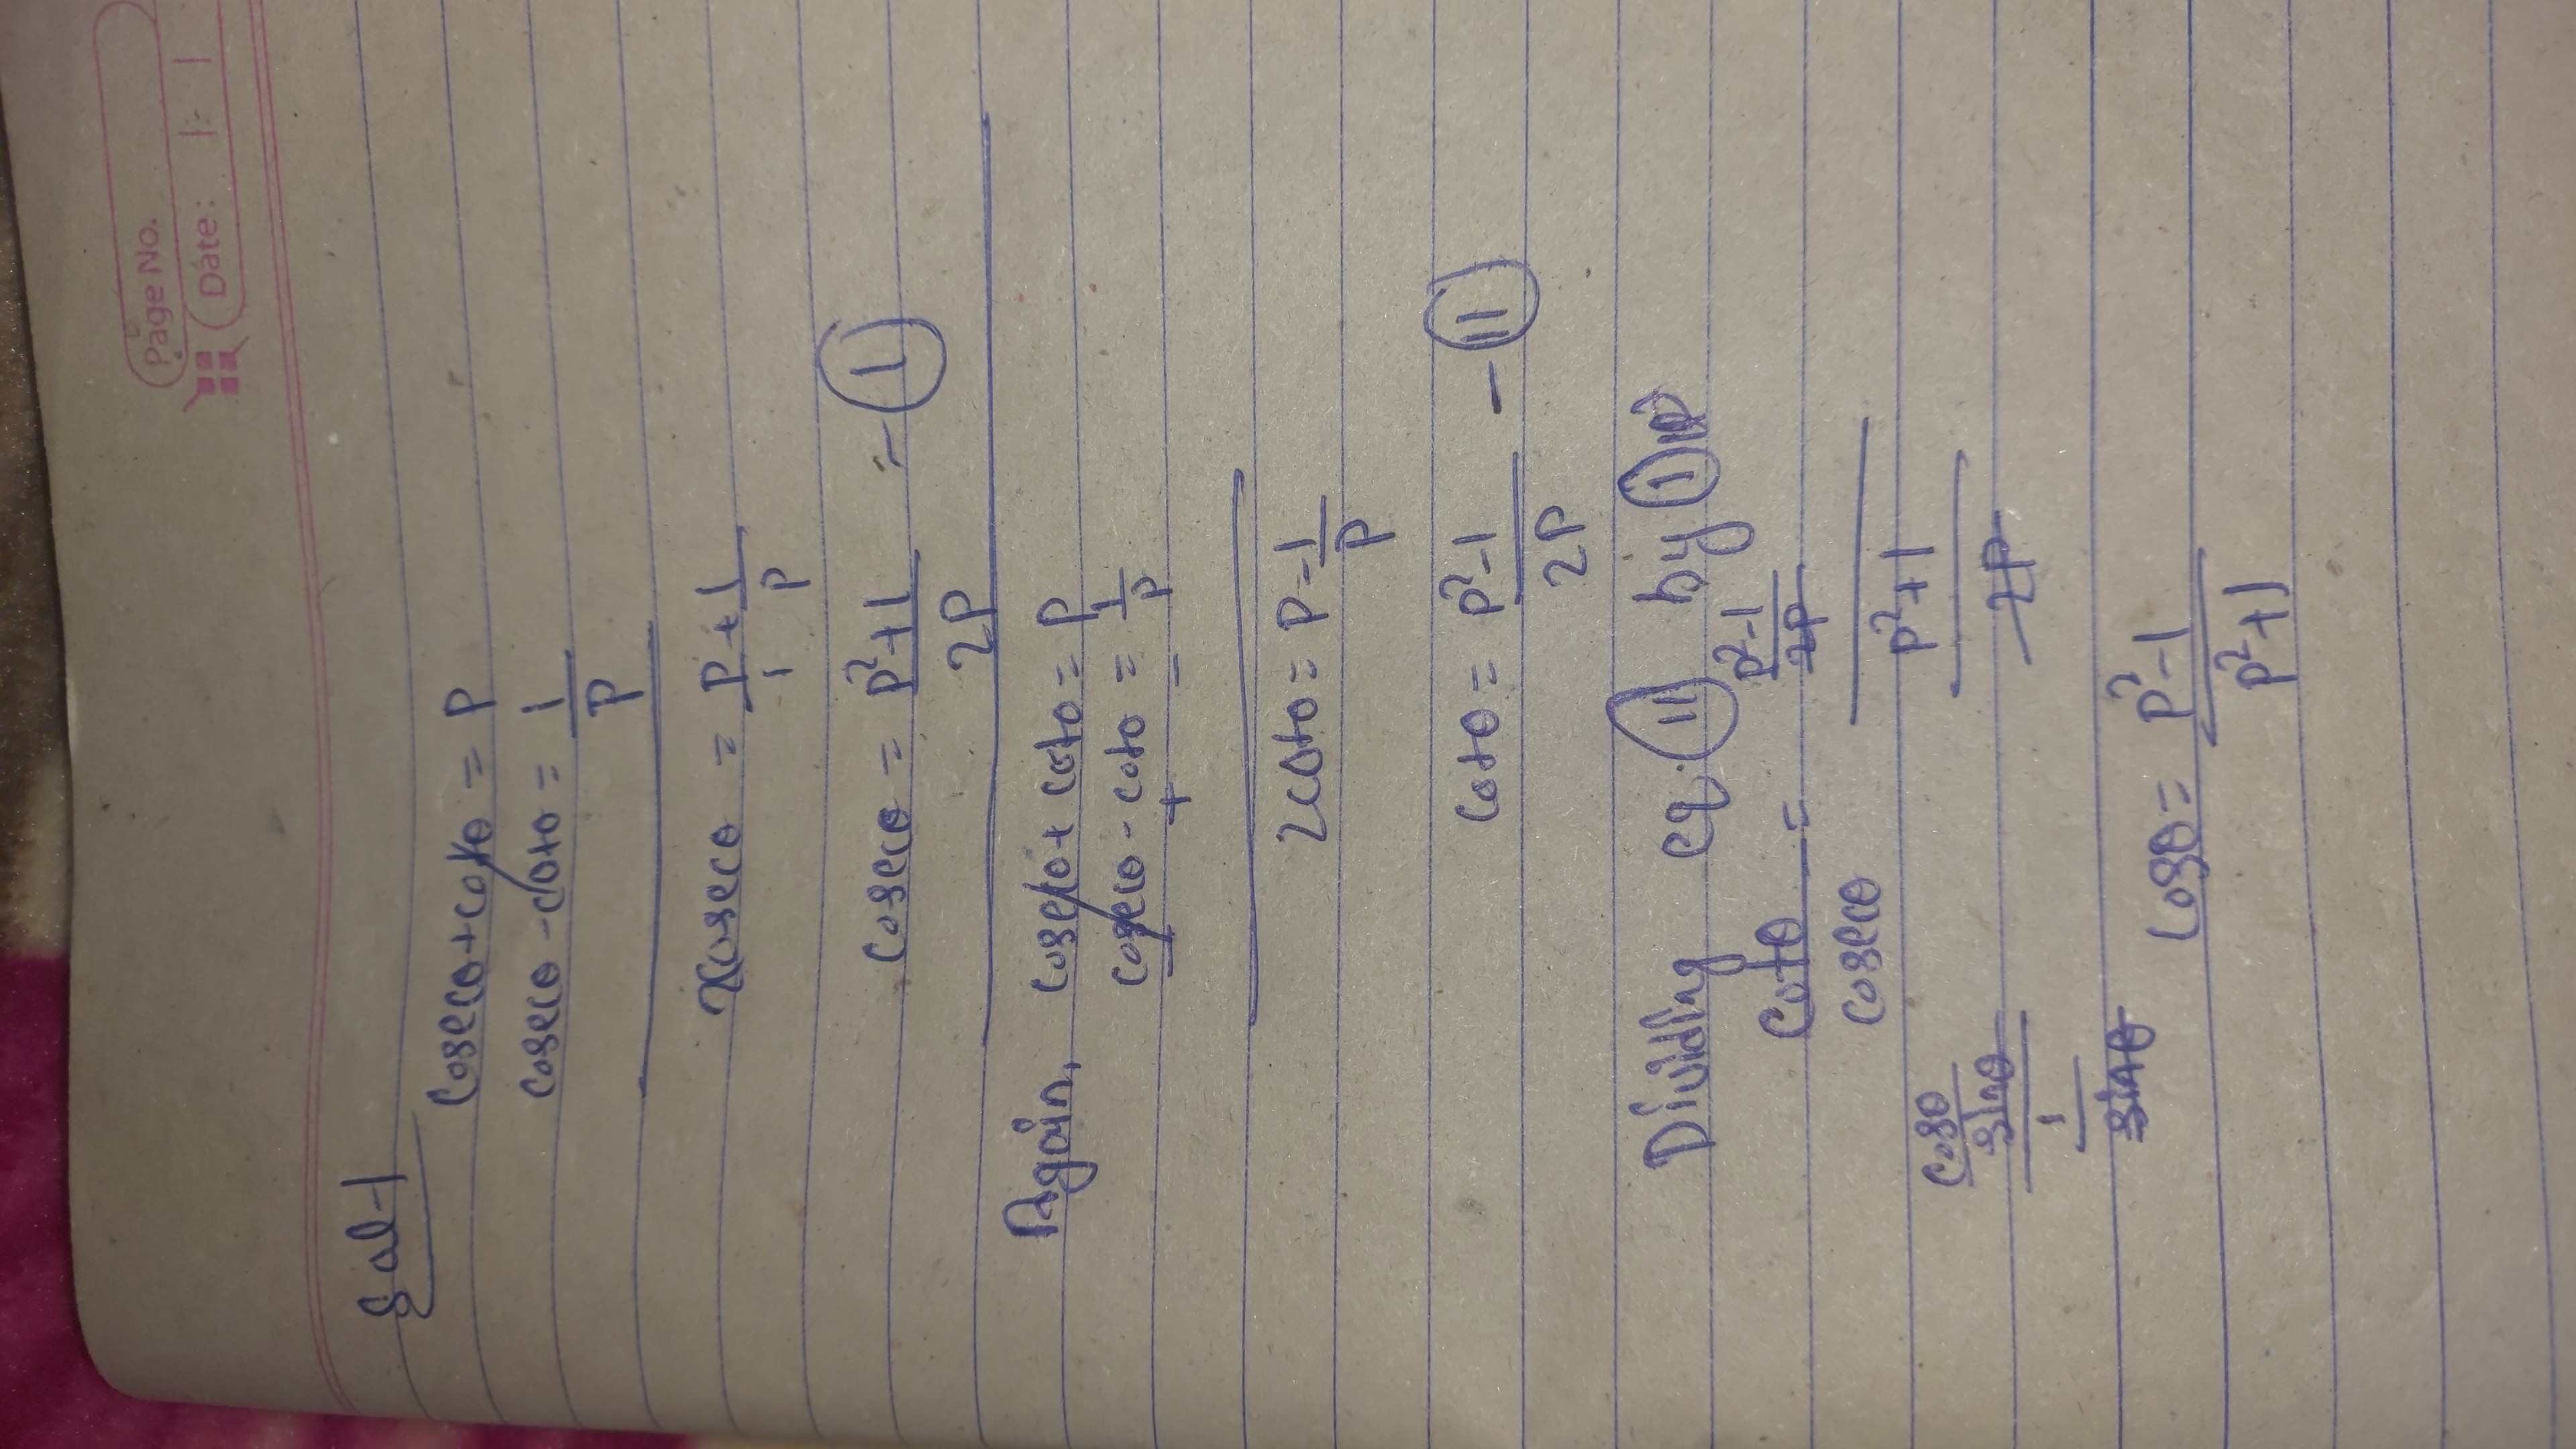 Page No.
Date:
Sol-1
Cosecθ+cotθ = P
cosecθ-cotθ = 1/P
2cosecθ = P/1 + 1/P
cosecθ = P²+1/2P - (I)
Again, cosecθ+cotθ = P
cosecθ-cotθ = 1/P
- + -
2cotθ = P-1/P
cotθ = P²-1/2P - (II)
Dividing eq. (II) by (I)
cotθ/cosecθ = P²-1/2P / P²+1/2P
cosθ/sinθ / 1/sinθ
cosθ = P²-1/P²+1